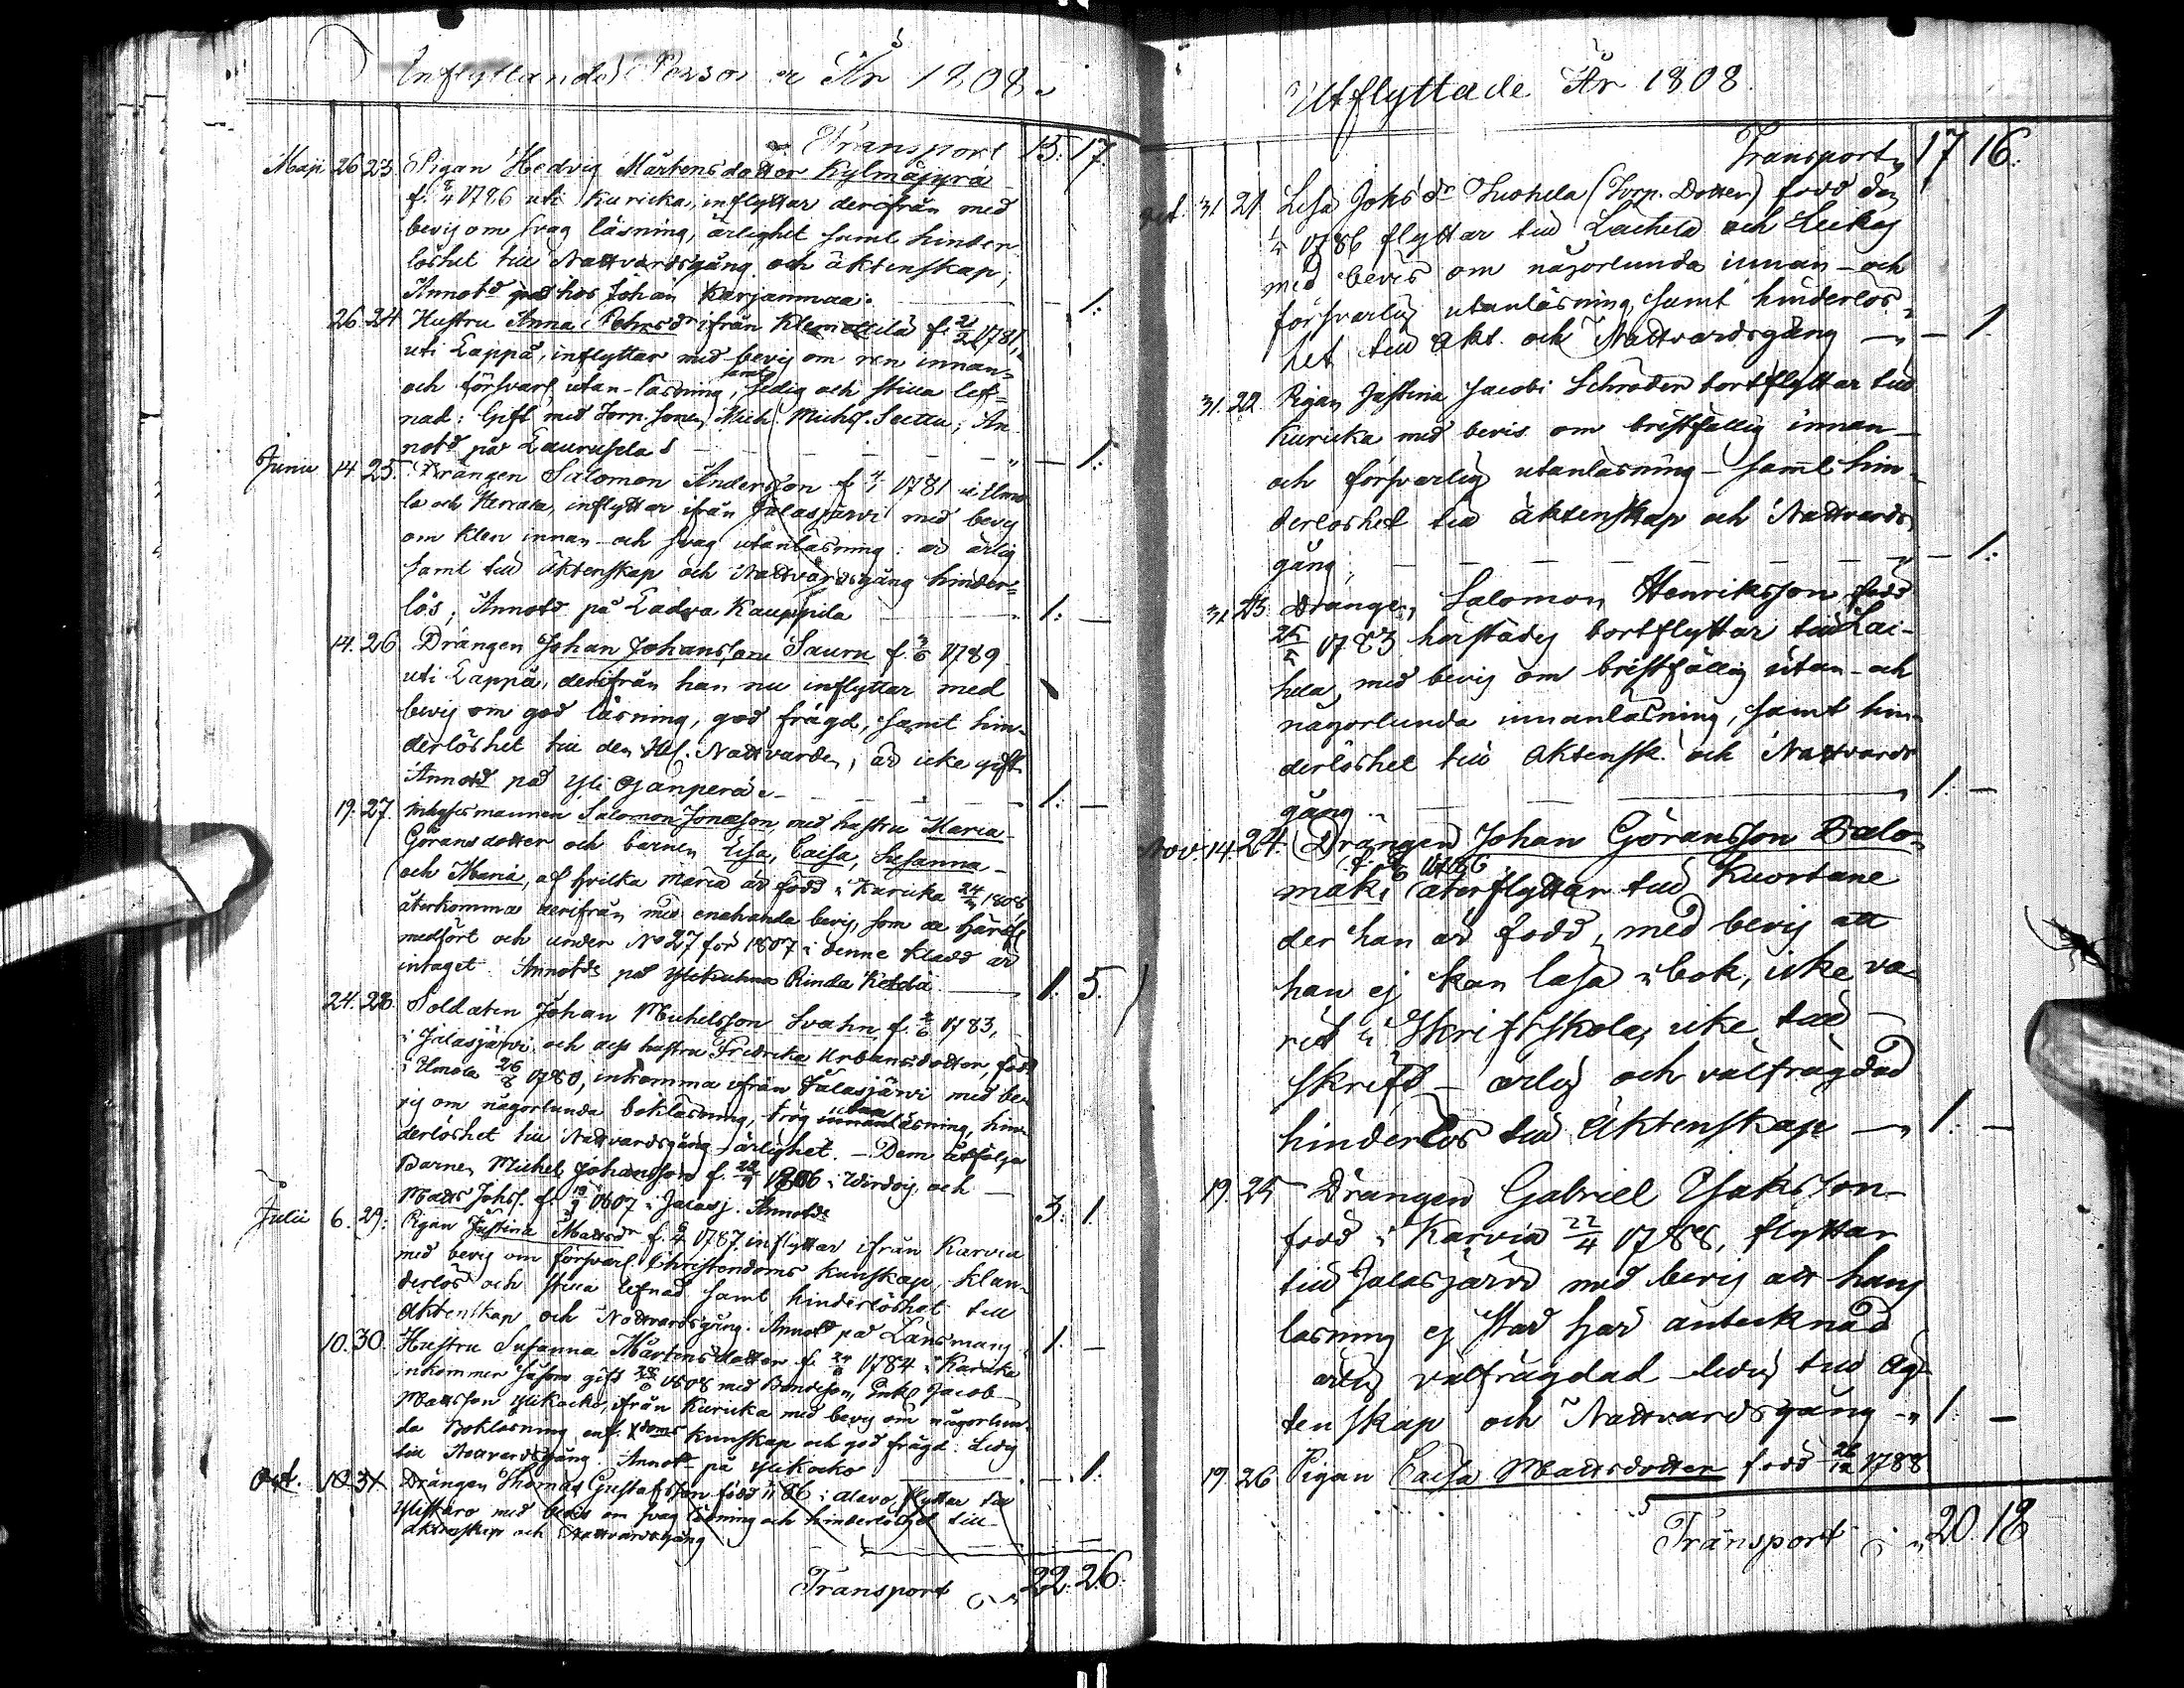 Inflyttande Personer År 1808.
Transport 15. 17.
Maji 26 23 Pigan Hedvig Mårtensdotter Kylmäjyrä
f. 1786 uti Kuricka, inflyttar derifrån med
bevis om svag läsning, ärlighet samt hinder
löshet till Nattvardsgång och äktenskap;
Annotd hos Johan Karjanmaa. 1.
26. 24 Hustru Anna ifrån f. 21/2 1781,
uti Lappå, inflyttar med bevis om ren innan-
och försvarl utan-läsning, samt sedig och stilla lef-
nad: Gift med Torp. sonen Mich. Michs. ; An
notd på 1.
Junii 14. 25. Drängen Salomon Andersson f 1781 i Ilmo
la och Herrala, inflyttar ifrån Jalasjärvi med bevis
om klen innan- och svag utanläsning: är ärlig
samt till äktenskap och Nattvardsgång hinder-
lös; Annotd på Ladva Kauppila 1. —
14. 26. Drängen Johan Johansson Sauru f. 1789
uti Lappå, derifrån han nu inflyttar med
bevis om god läsning, god frägd, samt hin-
derlöshet till den Hel. Nattvarden, är icke gift
Annotd på Yli Ojanperä. 1. —
19. 27. Salomon Jonasson, med hustru Maria
Göransdotter och barnen Lisa, Caisa, Susanna
och Maria, af hvilka Maria är född i Kuricka 24/ 1808,
återkomma derifrån med enahanda bevis, som de härifr
medfört och under No 27 för 1807 i denne kladd är
intaget. Annotds på Rinda Ketola 1. 5.
24. 28. Soldaten Johan Michelsson Svahn, f. 1783,
i Jalasjärvi, och dess hustru Fredrika Urbansdotter, född
i Ilmola 26/8 1780, inkomma ifrån Jalasjärvi med be-
vis om någorlunda bokläsning, trög utan läsning, hin-
derlöshet till Nattvardsgång ärlighet. — Dem åtfölja
Barnen Michel Johansson f. 1806 i Wirdois och
Matts Johs. f. 1807 i Jalasj. Annotds 3. 1.
Julii 6. 29. Pigan Justina Mattsdr f. 1787 inflyttar ifrån Karvia
med bevis om försvarl. Christendoms kunskap, klan-
derlös och stilla lefnad samt hinderlöshet till
äktenskap och Nattvardsgång. Annotd på Länsmans 1. —
10. 30. Hustru Susanna Mårtensdotter f. 24/ 1784 i Karvia
inkommer såsom gift 1808 med Bondeson, Enkl Jacob
Mattsson Ylikocko, ifrån Kuricka med bevis om någorlun
da Bokläsning, enf. Xdoms kunskap och god frägd. Ledig
till Nattvardsgång. Annotd på Ylikocko — 1.
Oct. 10. 31. Drängen Thomas Gustafsson född i Alavo, flyttar till
Ylistaro med bevis om svag läsning och hinderlöshet till
äktenskap och Nattvardsgång
Transport 22. 26.
Utflyttade År 1808.
Transport 17 16.
Oct. 31. 21 Lisa Johsdr Luohela (Torp. Dotter) född den
1786 flyttar till Laihela och
med bevis om någorlunda innan- och
försvarlig utanläsning, samt hinderlös-
het till äkt. och Nattvardsgång — 1
31. 22. Pigan Justina Jacobi Schröder bortflyttar till
Kuricka med bevis om bristfällig innan-
och försvarlig utanläsning — samt hin-
derlöshet till äktenskap och Nattvards
gång; — 1.
31. 23. Drängen Salomon Henriksson född
25/ 1783 härstädes bortflyttar till Lai-
hela, med bevis om bristfällig utan- och
någorlunda innanläsning, samt hin-
derlöshet till äktensk. och Nattvards
gång 1. —
Nov. 14. 24. Drängen Johan Göransson Palo-
mäki f. 1786 återflyttar till Kuortane
der han är född, med bevis att
han ej kan läsa i bok, icke va-
rit i Skriftskola, icke till
skrift — ärlig och välfrägdad
hinderlös till äktenskap 1. —
19. 25 Drängen Gabriel Isaksson
född i Karvia 22/4 1788, flyttar
till Jalasjärvi med bevis att hans
läsning ej står här antecknad
ärlig välfrägdad ledig till äg-
tenskap och Nattvardsgång 1. —
19. 26 Pigan Caisa Mattsdotter född 26/12 1788
Transport 20. 18